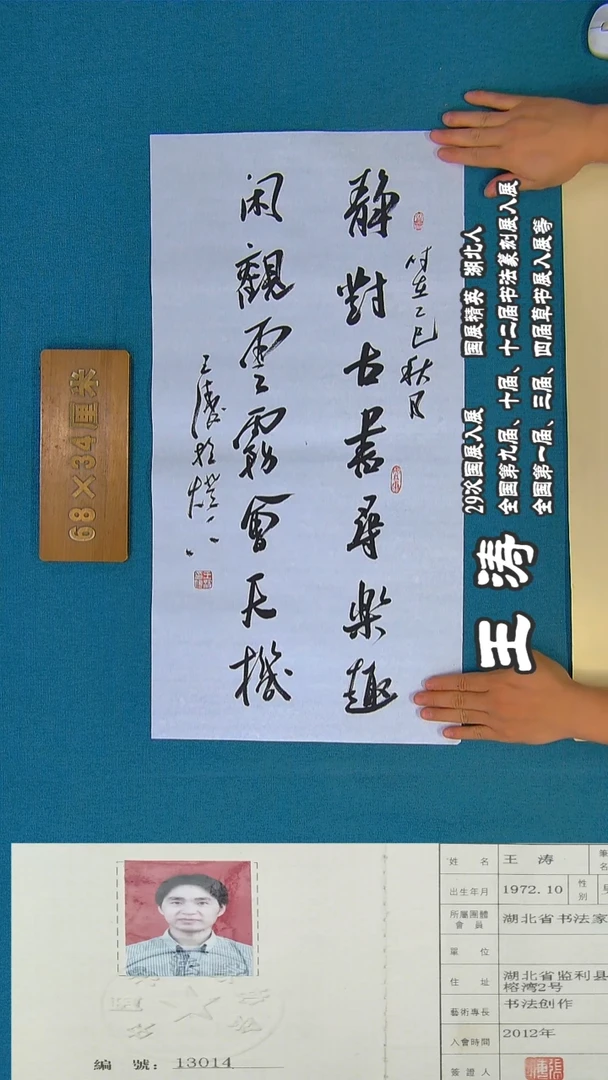 静對古書尋樂趣
闲觀雲霧會天機
时在乙巳秋月
王涛
68×34厘米
王涛
29次国展入展 国展精英 湖北人
全国第九届、十届、十二届书法篆刻展入展
全国第一届、三届、四届草书展入展等
編 號：13014
姓 名 王 涛 筆名
出生年月 1972.10 性别
所屬團體會員 湖北省书法家
單 位
住 址 湖北省监利县
榕湾2号
藝術專長 书法创作
入會時間 2012年
簽證人